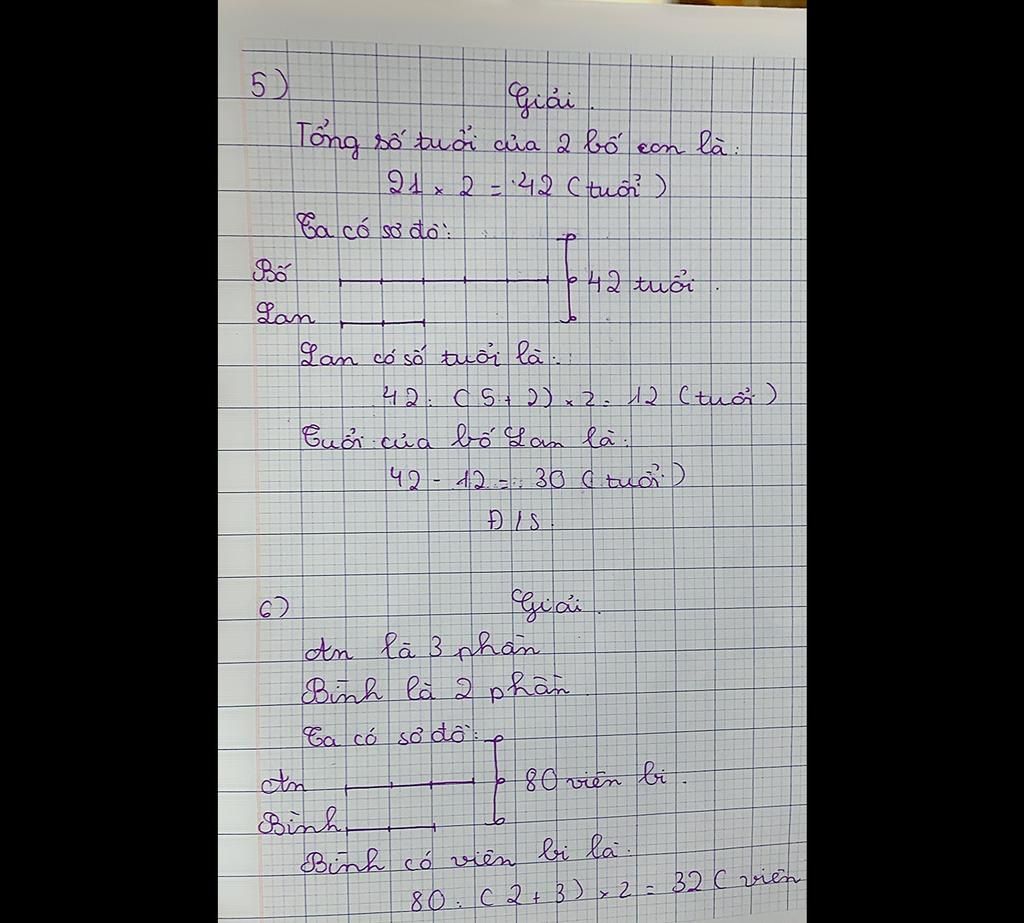 5)
Giải.
Tổng số tuổi của 2 bố con là:
21 × 2 = 42 (tuổi)
Ta có sơ đồ:
Bố 42 tuổi.
Lan
Lan có số tuổi là:
42 : (5 + 2) × 2 = 12 (tuổi)
Tuổi của bố Lan là:
42 - 12 = 30 (tuổi)
Đ/S
6)
Giải.
An là 3 phần
Bình là 2 phần
Ta có sơ đồ:
An 80 viên bi.
Bình
Bình có viên bi là:
80 : (2 + 3) × 2 = 32 (viên